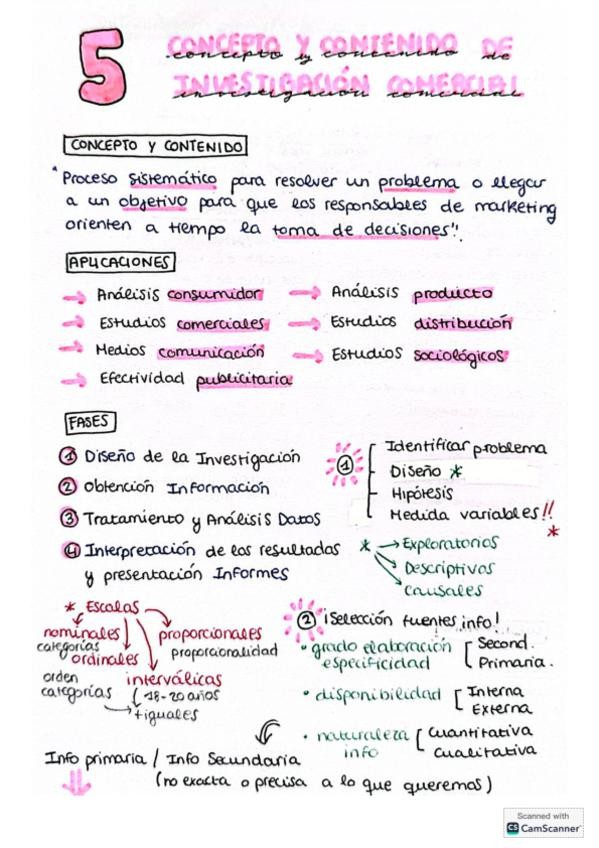 5 CONCEPTO Y CONTENIDO DE
concepto y contenido de
INVESTIGACIÓN COMERCIAL
investigación comercial
CONCEPTO Y CONTENIDO
"Proceso sistemático para resolver un problema o llegar
a un objetivo para que los responsables de marketing
orienten a tiempo la toma de decisiones".
APLICACIONES
→ Análisis consumidor → Análisis producto
→ Estudios comerciales → Estudios distribución
→ Medios comunicación → Estudios sociológicos
→ Efectividad publicitaria
FASES
① Diseño de la Investigación
② Obtención Información
③ Tratamiento y Análisis Datos
④ Interpretación de los resultados
y presentación Informes
① Identificar problema
Diseño *
Hipótesis
Medida variables!!
*
* → Exploratorios
Descriptivos
causales
* Escalas
nominales
categorías
ordinales
orden
categorías
proporcionales
proporcionalidad
interválicas
(18-20 años
→ + iguales
② ¡Selección fuentes info!
• grado elaboración
especificidad
Second.
Primaria.
• disponibilidad
Interna
Externa
• naturaleza
info
Cuantitativa
Cualitativa
Info primaria / Info Secundaria
(no exacta o precisa a lo que queremos)
Scanned with
CS CamScanner